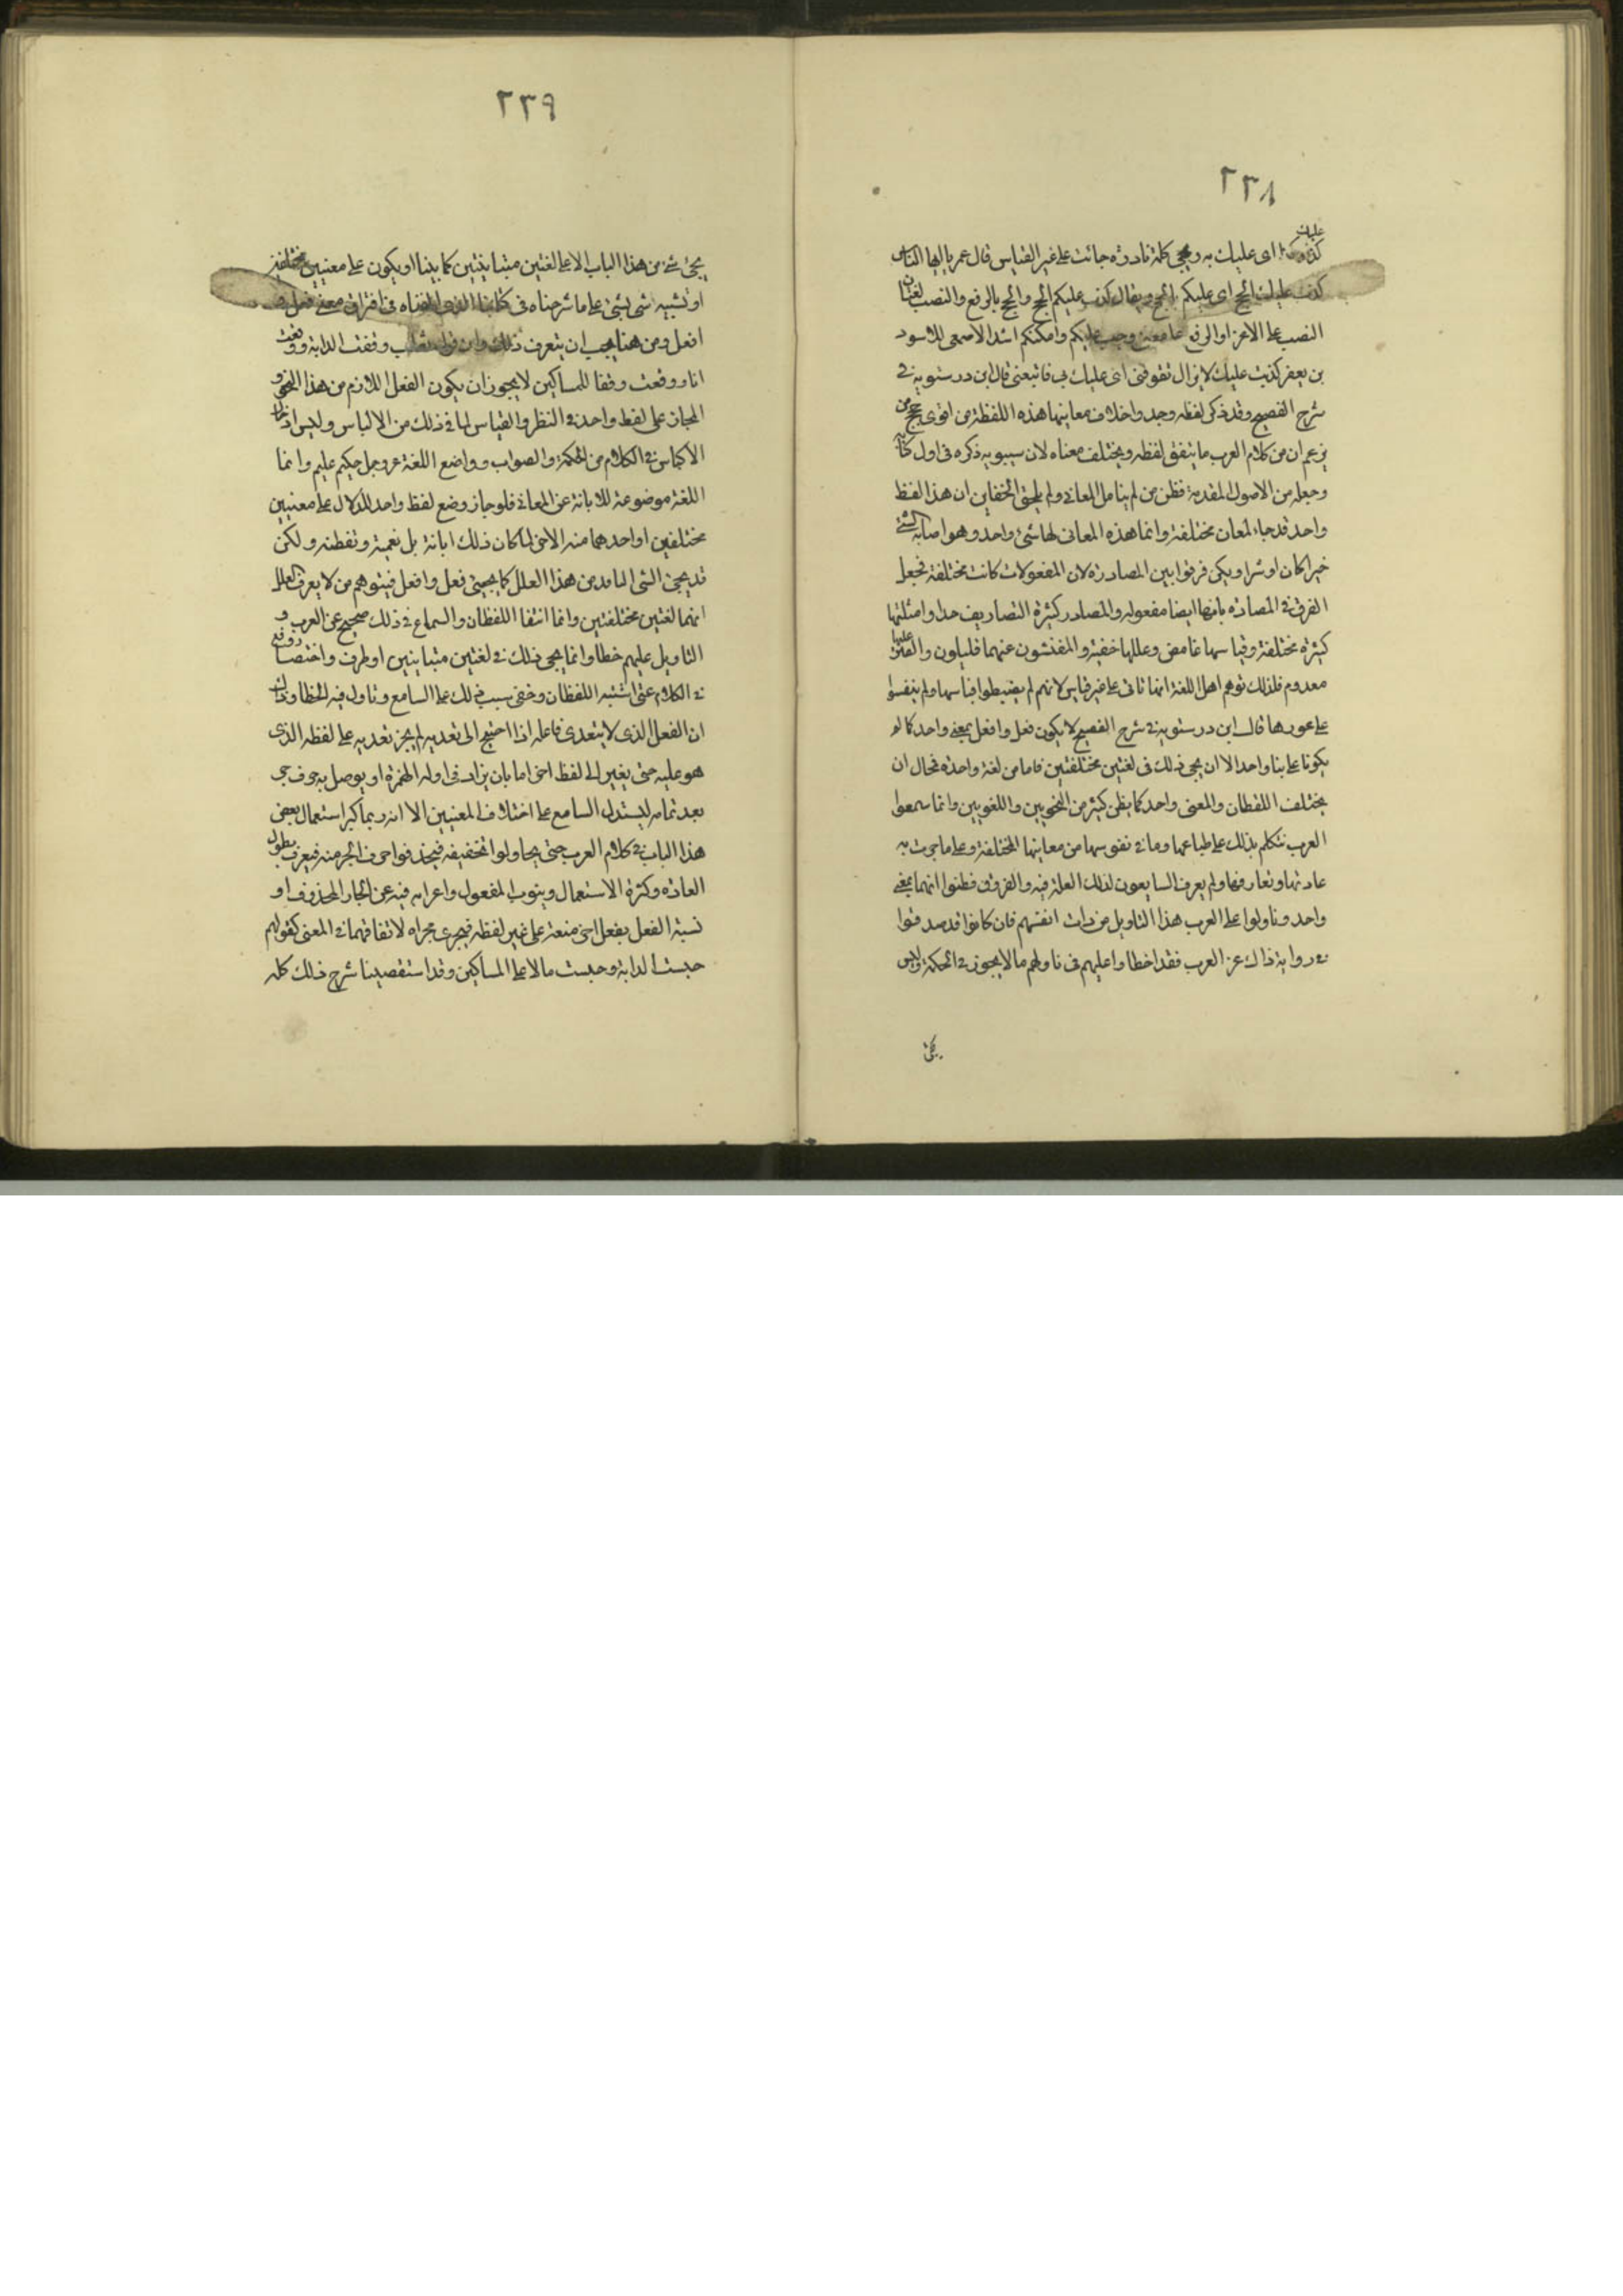 ٢٣٨
عليك
كذب كذا اى عليك به وهى كلمة نادرة جائت على غير القياس قال عمر يا ايها الناس
كذب عليك الحج اى عليكم الحج ويقال كذب عليكم الحج والحج بالرفع والنصب لغتان
النصب على الاغراء والرفع على معنى وجب عليكم وامكنكم انشد الاصمعى للاسود
بن يعفر كذبت عليك لا يزال تقوفنى اى عليك بى فاتبعنى قال ابن درستويه فى
شرح الفصيح وقد ذكر لفظه وجد واختلاف معانيها هذه اللفظة من اقوى حجج من
يزعم ان من كلام العرب ما يتفق لفظه ويختلف معناه لان سيبويه ذكره فى اول كتابه
وجعله من الاصول المقدمة فظن من لم يتامل المعانى ولم يلحق الخفاين ان هذا لفظ
واحد قد جاء لمعان مختلفة وانما هذه المعانى لها شئ واحد وهو اصابة الشئ
خيرا كان او شرا ويكى فرقوا بين المصادرة لان المفعولات كانت مختلفة نجعل
الفرق فى المصادة بانها ايضا مفعوله والمصادر كثيرة التصاريف حدا وامثلتها
كثيرة مختلفة وقياسها غامض وعللها خفية والمفتشون عنهما قليلون والصبر عليها
معدوم فلذلك توهم اهل اللغة انها تاتى على غير قياس لانهم لم يضبطوا قياسها ولم يقفوا
على عورها قال ابن درستويه فى شرح الفصيح لا يكون فعل وافعل بمعنى واحد كما لو
يكونا على بنا واحد الا ان يجى ذلك فى لغتين مختلفتين فاما من لغة واحدة نحال ان
يختلف اللفظان والمعنى واحد كما يظن كثير من النحويين واللغويين وانما سمعوا
العرب تتكلم بذلك على طباعها وما فى نفوسها من معانيها المختلفة وعلى ما جرت به
عادتها وتعارفها ولم يعرف السايعون لذلك العلة فيه والفروق فظنوا انهما بمعنى
واحد وتاولوا على العرب هذا التاويل من ذات انفسهم فان كانوا قد صدقوا
فى رواية ذاك عن العرب فقد اخطاوا عليهم فى تاولهم ما لا يجوز فى الحكمة وليس
يجى
٢٣٩
يجئ شئ من هذا الباب الا على لغتين متباينتين كما بينا او يكون على معنيين مختلفين
او تشبيه شى بشئ على ما شرحناه فى كتابنا الذى الفناه فى افتراق معنى فعل و
افعل ومن هنا يجب ان يتعرف ذلك وان قول ثعلب وقفت الدابة ووقفت
انا ووقعت وقفا للمساكين لا يجوز ان يكون الفعل اللازم من هذا النحو و
المجاز على لفظ واحد فى النظر والقياس لما فى ذلك من الالباس وليس ادخال
الالباس فى الكلام من الحكمة والصواب وواضع اللغة عز وجل حكيم عليم وانما
اللغة موضوعة للابانة عن المعانى فلو جاز وضع لفظ واحد للدلال على معنيين
مختلفين او احدهما منه الاخر لما كان ذلك ابانة بل تعمية وتغطنه ولكن
قد يجئ الشى المادد من هذا العلل كما يجيئ فعل وافعل فيتوهم من لا يعرف العلل
انهما لغتين مختلفتين وانما اتفقا اللفظان والسماع فى ذلك صحيح عن العرب و
التاويل عليهم خطا وانما يجى ذلك فى لغتين متباينين او لحرف واختصار وقع
فى الكلام عتى اشتبه اللفظان وخفى سبب ذلك على السامع وتاول فيه الخطا وذلك
ان الفعل الذى لا يتعدى فاعله اذا احتيج الى تعديه لم يجز تعديه على لفظه الذى
هو عليه حتى يغير الى لفظ اخر اما بان يزاد فى اوله الهمزة او يوصل به حرف جر
بعد تمامه ليستدل السامع على اختلاف المعنيين الا انه ربما كثر استعمال بعض
هذا الباب فى كلام العرب حتى يحاولوا تخفيفه فيحذفوا حرف الجر منه فيعرف بطول
العادة وكثرة الاستعمال وينوب المفعول واعرابه فيه عن الجار المحذوف او
نسبة الفعل بفعل اخر متعد على غير لفظه فيجرى مجراه لاتفاقهما فى المعنى كقولهم
حبست الدابة وحبست مالا على المساكين وقد استقصينا شرح ذلك كله